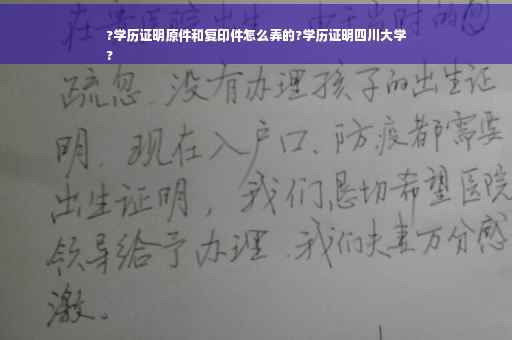 ?学历证明原件和复印件怎么弄的?学历证明四川大学
?
疏忽.没有办理孩子的出生证
明.现在入户口、防疫都需要
出生证明，我们恳切希望医院
领导给予办理.我们夫妻万分感
激。